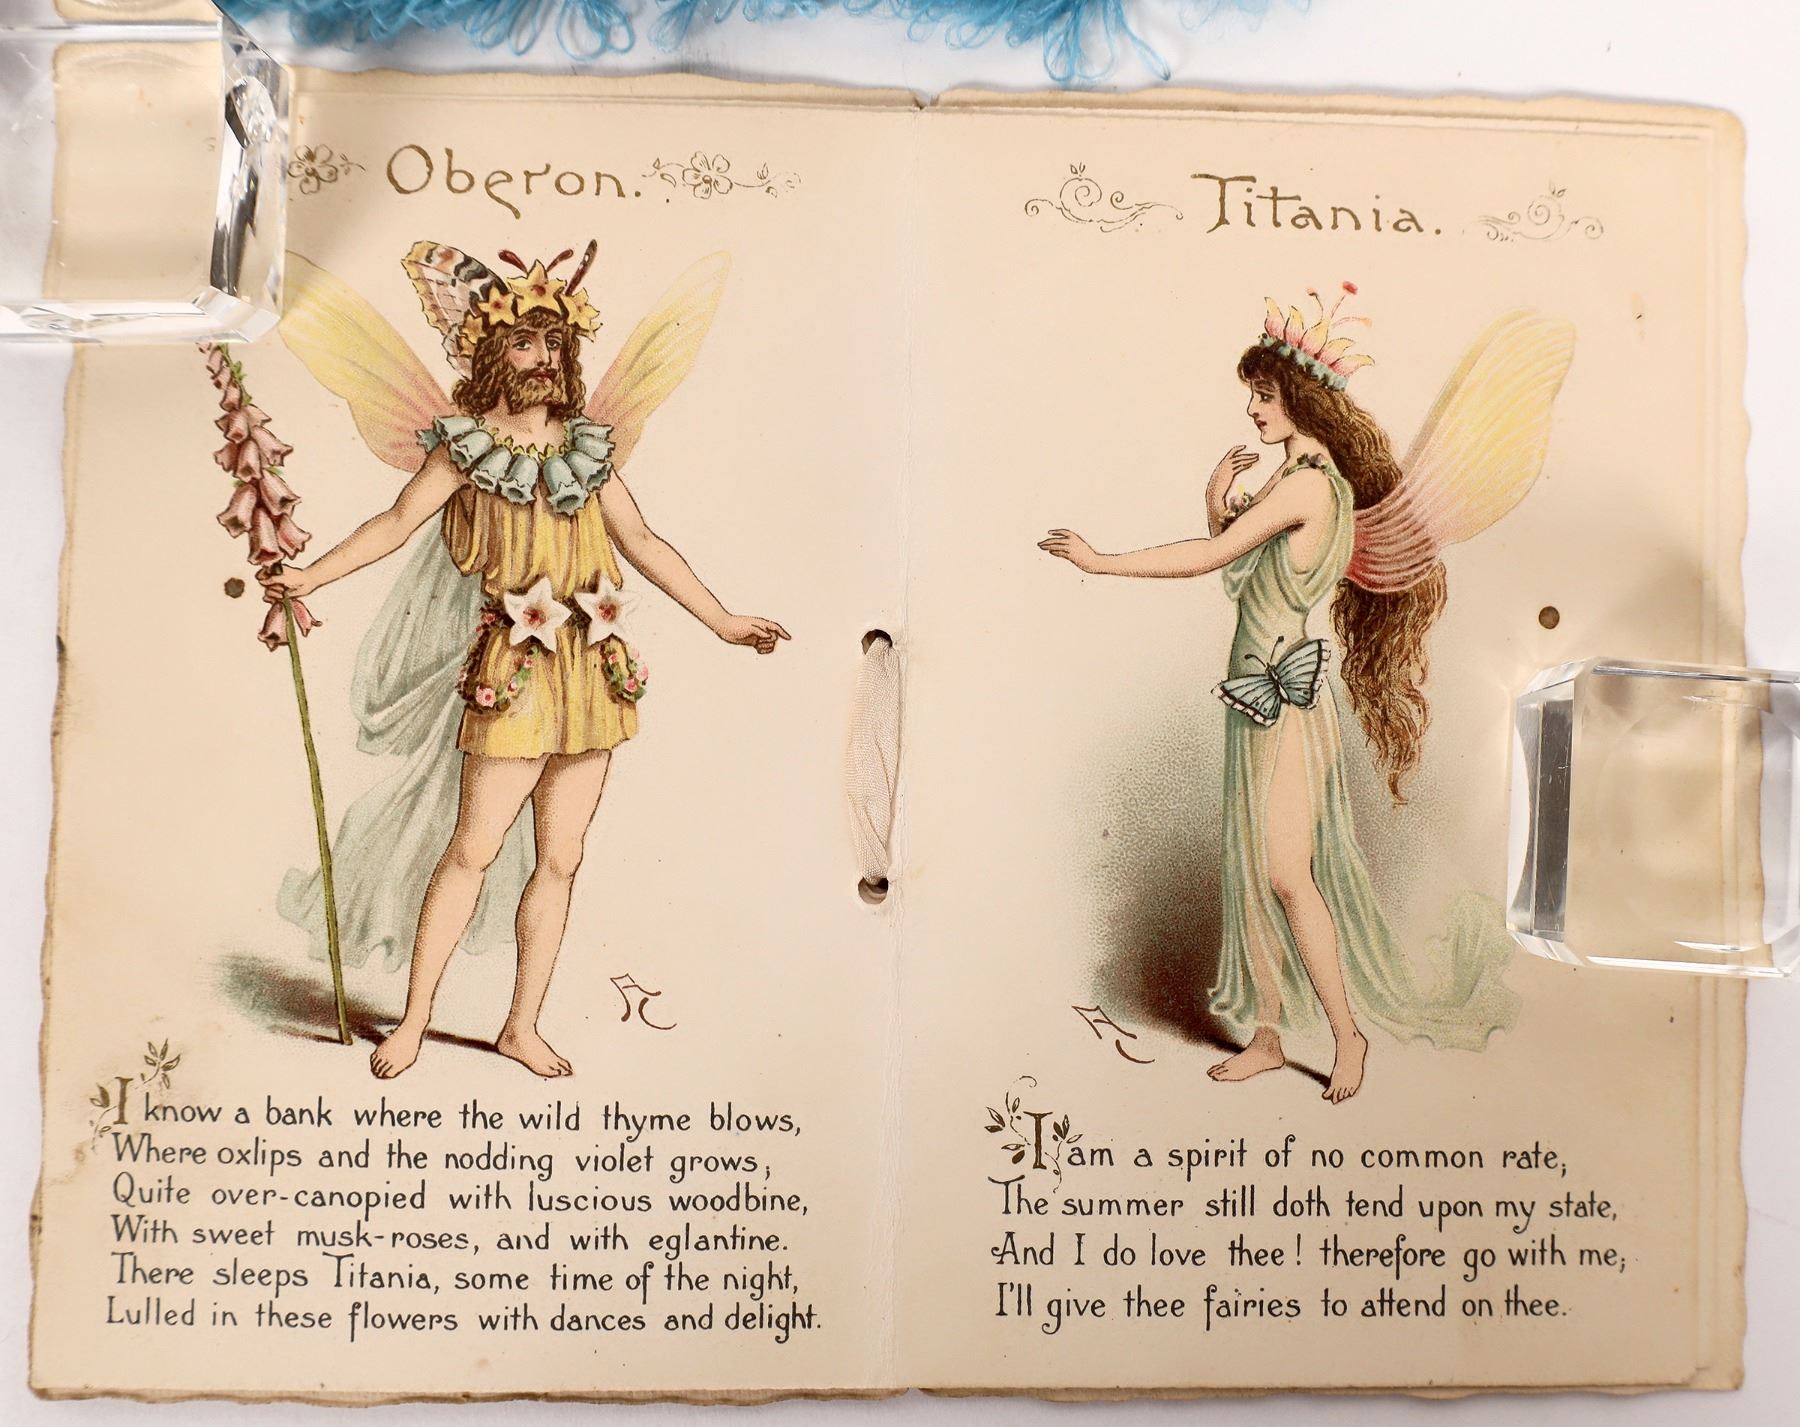 Oberon.
I know a bank where the wild thyme blows,
Where oxlips and the nodding violet grows;
Quite over-canopied with luscious woodbine,
With sweet musk-roses, and with eglantine.
There sleeps Titania, some time of the night,
Lulled in these flowers with dances and delight.
Titania.
I am a spirit of no common rate;
The summer still doth tend upon my state,
And I do love thee! therefore go with me;
I'll give thee fairies to attend on thee.